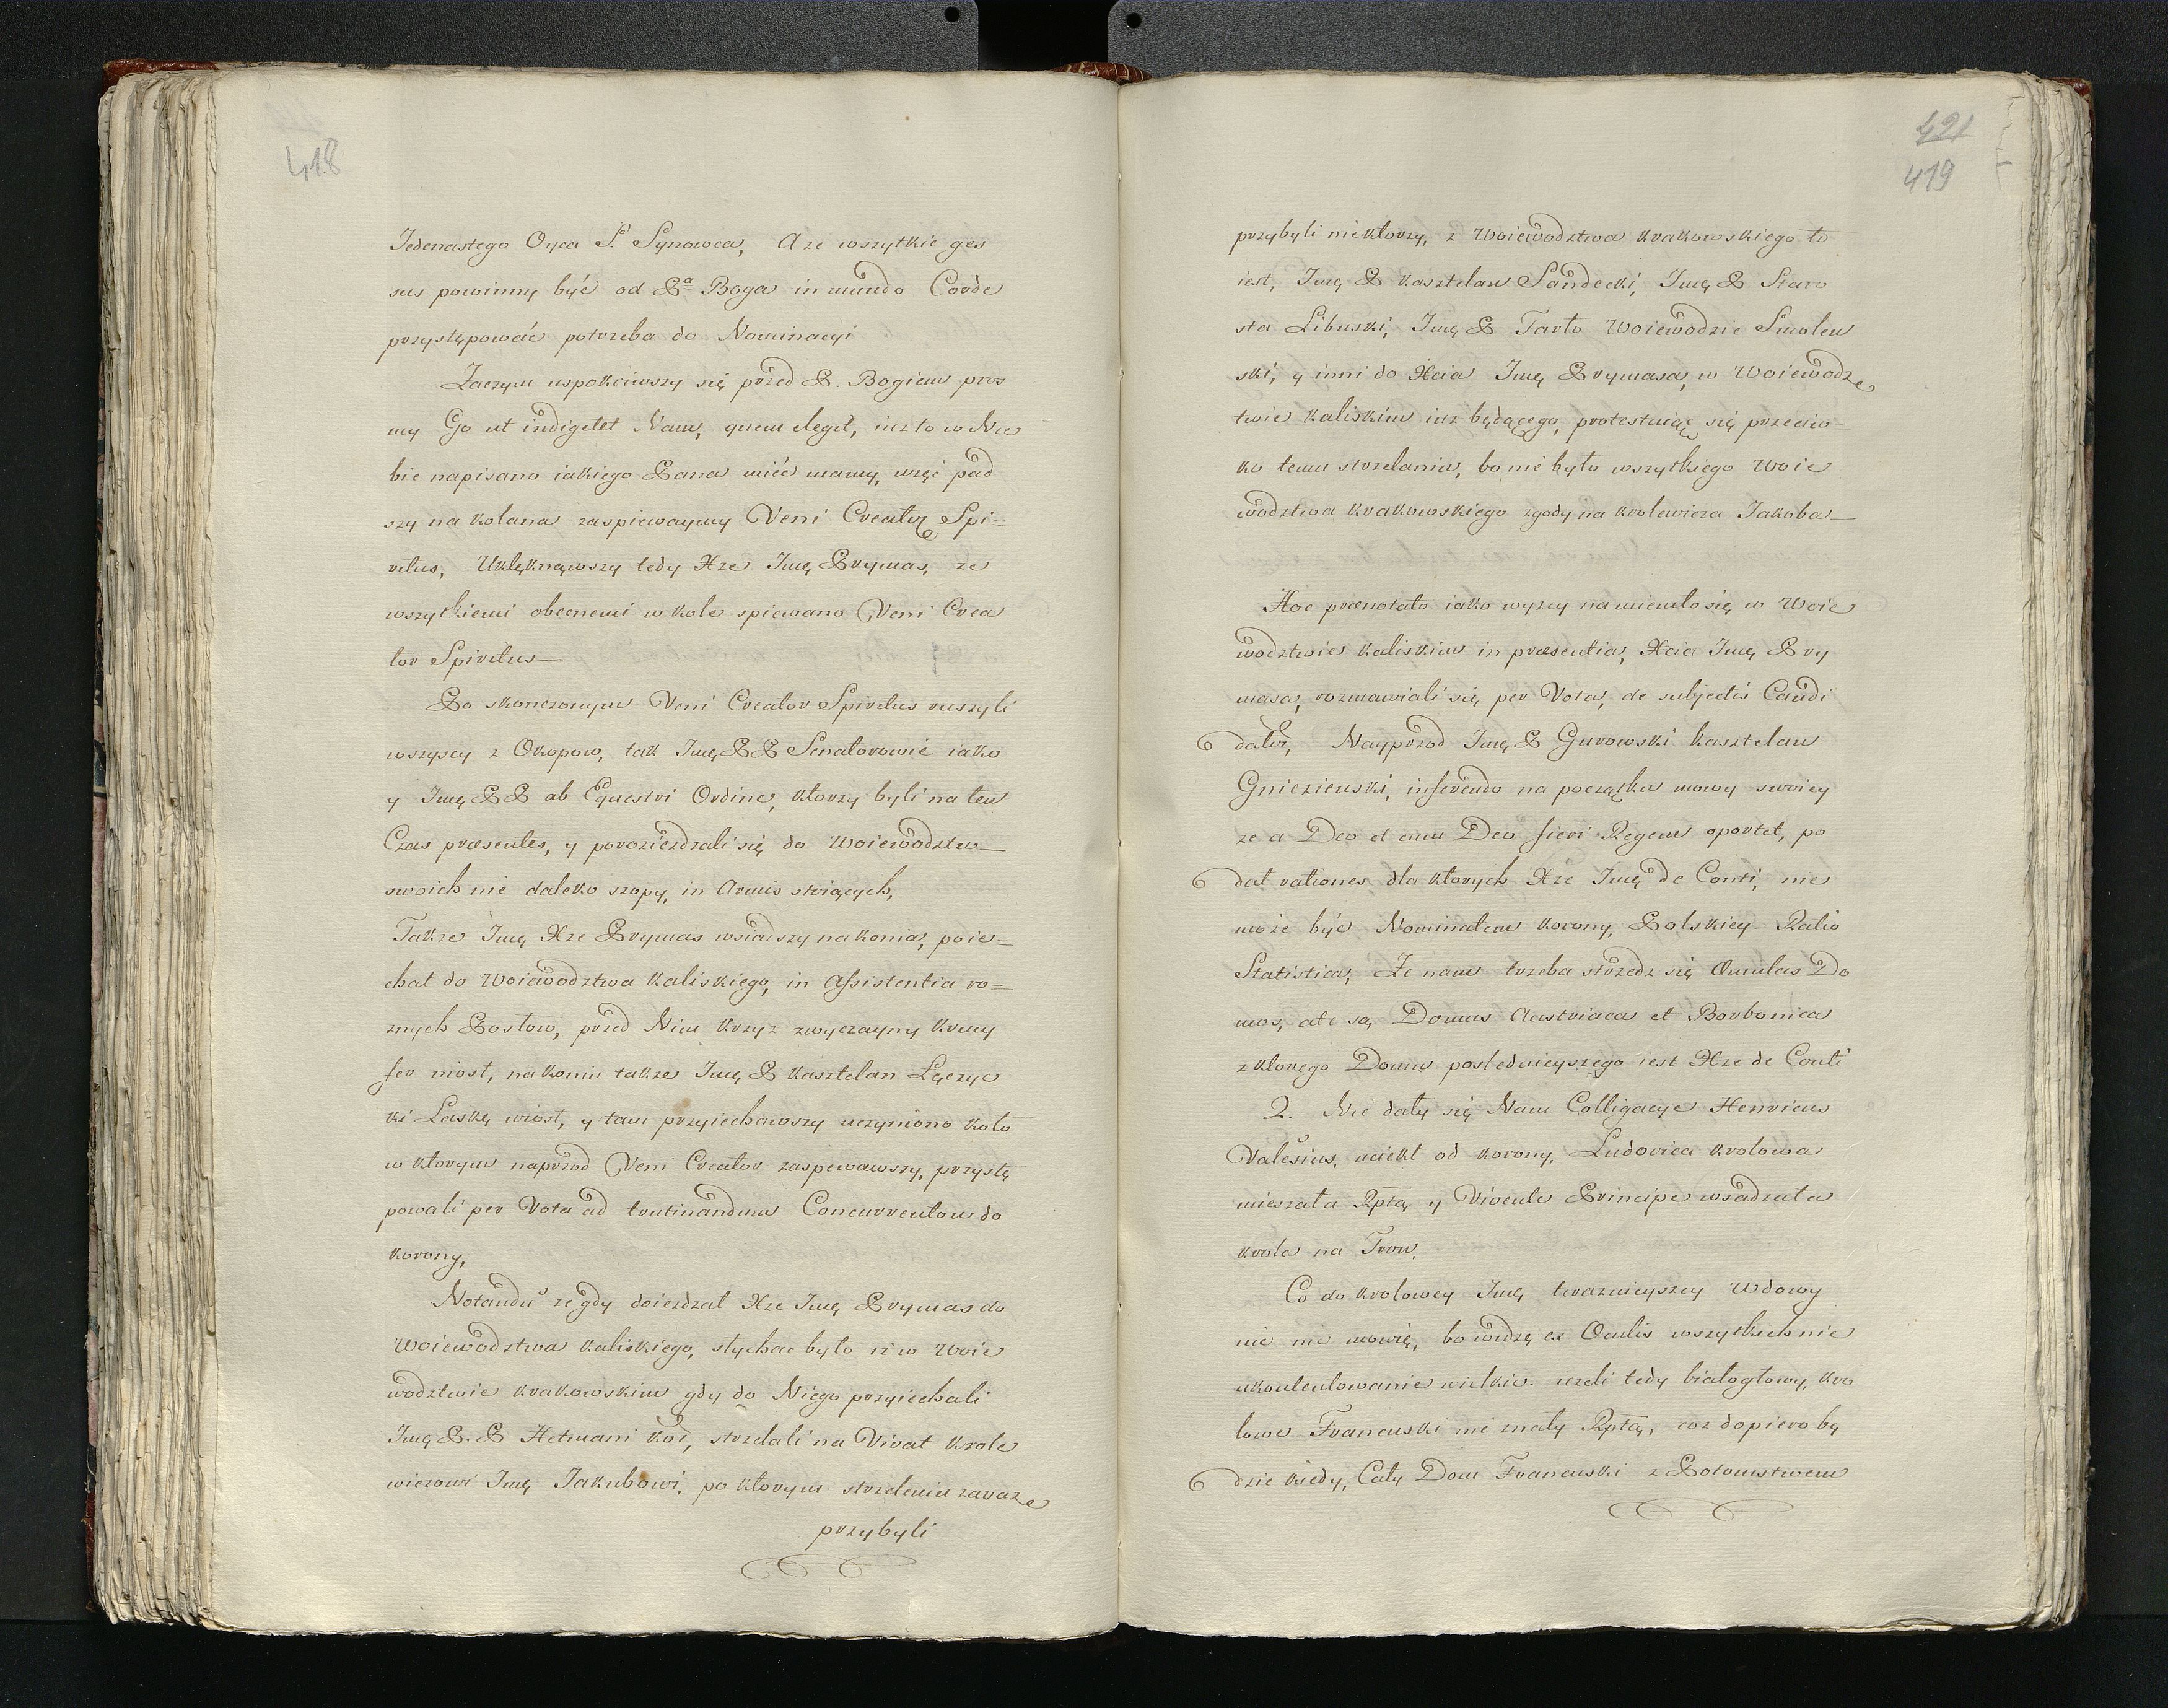 418
Jedenastego Oyca S. Synowca, A ze wszytkie ges
sus powinny być od Pª Boga in mundo Corde
przystępować potrzeba do Nominacyi
Zaczym uspokoiwszy się przed P. Bogiem pros
my Go ut indigetet Nam, quem elegit, iuż to w Nie
bie napisano iakiego Pana mieć mamy, więc pad
szy na kolana zaspiewaymy Veni Creator Spi=
ritus, Uklęknąwszy tedy Xze Jmę Prymas, ze
wszytkiemi obecnemi w kole spiewano Veni Crea
tor Spiritus—
Po skonczonym Veni Creator Spiritus ruszyli
wszyscy z Okopow, tak Jmę PP Senatorowie iako
y Jmę PP ab Equestri Ordine, ktorzy byli na ten
Czas præsentes, y porozieżdzali się do Woiewodztw—
swoich nie daleko szopy, in Armis stoiących,
Takze Jmę Xze Prymas wsiadszy na konia, poie=
chał do Woiewodztwa Kaliskiego, in Assistentia ro=
znych Posłow, przed Nim krzyz zwyczayny Krucy
fer niosł, na koniu takze Jmę P Kasztelan Lęczyc
ki Laskę niosł, y tam przyiechawszy uczyniono koło
w ktorym naprzod Veni Creator zaspewawszy, przystę
powali per Vota ad trutinandum Concurrentow do
korony,
Notandū ze gdy doiezdzał Xze Jmę Prymas do
Woiewodztwa Kaliskiego, słychac było iz w Woie
wodztwie Krakowskim gdy do Niego przyiechali
Jmę P. P Hetmani Kor, strzelali na Vivat Krole
wiczowi Jmę Jakubowi, po ktorym strzeleniu zaraz
przybyli
421
419
przybyli niektorzy, z Woiewodztwa Krakowskiego to
iest, Jmę P Kasztelan Sandecki, Jmę P Staro
sta Libuski, Jmę P Tarło Woiewodzic Smolen
ski, y inni do Xcia Jmę Prymasa, w Woiewodz
twie Kaliskim iuz będącego, protestuiąc się przeciw=
ko temu strzelaniu, bo nie było wszytkiego Woie
wodztwa Krakowskiego zgody na krolewicza Jakoba—
Hoc prænotato iako wyzey namieniło się w Woie
wodztwie Kaliskim in præsentia, Xcia Jmę Pry
masa, rozmawiali się per Vota, de subjectis Candi
datoř, Nayprzod Jmę P Gurowski Kasztelan
Gniezienski, inferendo na początku mowy swoiey
ze a Deo et cum Deo fieri Regem oportet, po
dał rationes dla ktorych Xże Jmę de Conti, nie
może być Nominatem korony, Polskiey Ratio
Statistica, Ze nam trzeba strzedz się Æmulas Do
mos, ale są Domus Austriaca et Borbonica
z ktorego Domu poslednieyszego iest Xze de Conti
2. Nie dały się Nam Colligacye Henricus
Valesius, uciekł od korony, Ludovica krolowa
mieszała Rptą y Vivente Principe wsadzała
krola na Tron.
Co do krolowey Jmę terazнieyszey Wdowy
nie nie mowię, bo widzę ex Oculis wszytkich nie
ukontentowanie wielkie. iezeli tedy białogłowy, kro
lowe Francuski nie znały Rptą, coz dopiero bę
dzie kiedy, Cały Dom Francuski z Potomstwem